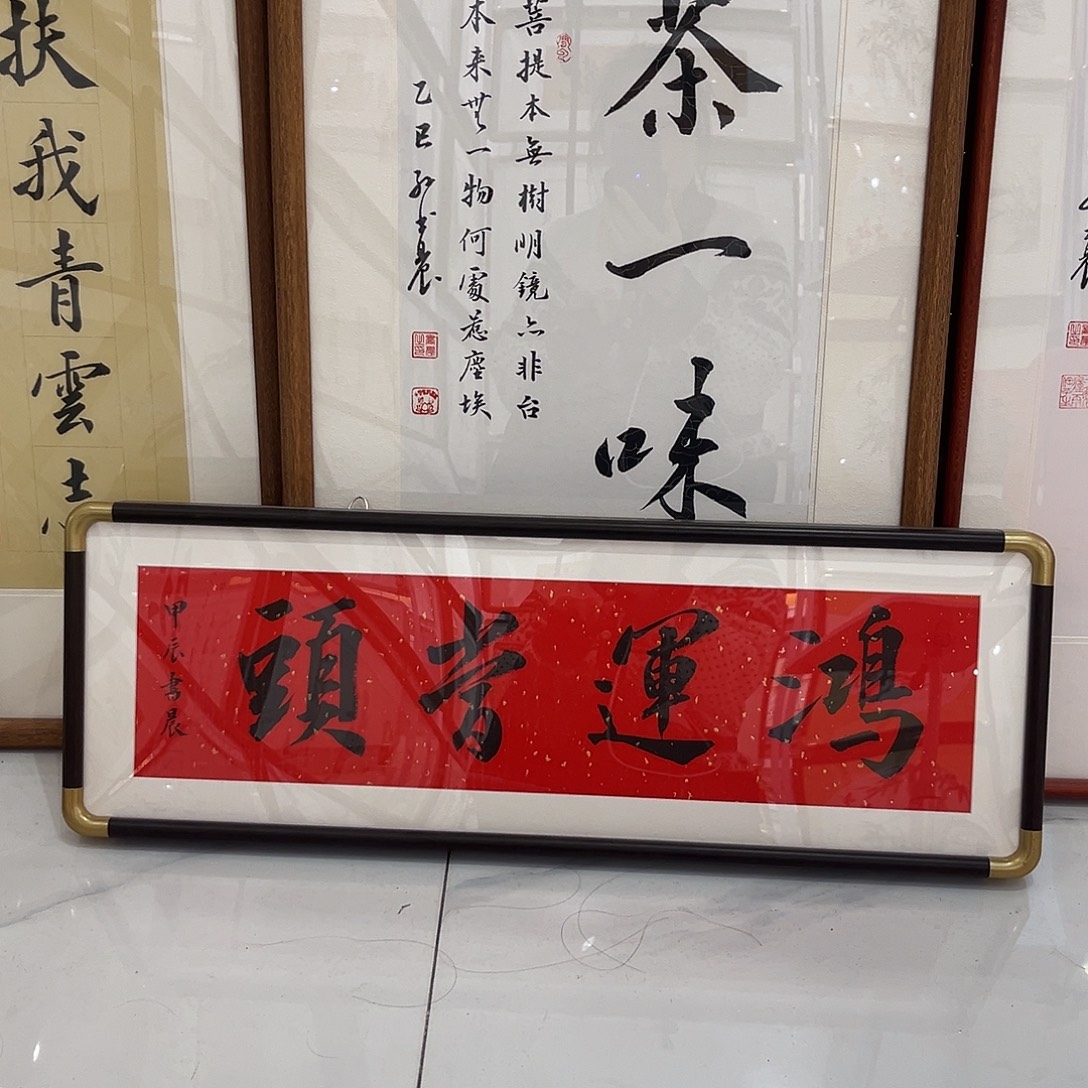 茶一味
菩提本無樹明鏡亦非台
本来無一物何處惹塵埃
乙巳孙書晨
扶我青雲志
鸿運當頭
甲辰書晨